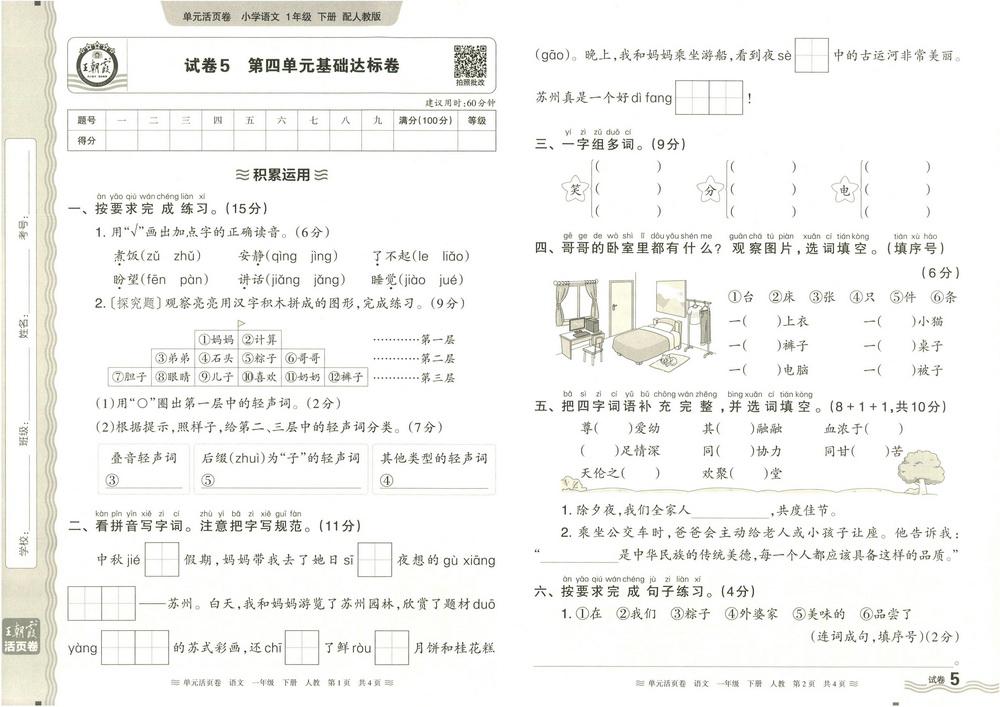 单元活页卷 小学语文 1年级 下册 配人教版
王朝霞
试卷5 第四单元基础达标卷
拍照批改
建议用时:60分钟
题号 一 二 三 四 五 六 七 八 九 满分(100分) 等级
得分
考号:
姓名:
班级:
学校:
王朝霞
活页卷
积累运用
àn yāo qiú wán chéng liàn xí
一、按要求完成练习。(15分)
1. 用“√”画出加点字的正确读音。(6分)
煮饭(zǔ zhǔ) 安静(qìng jìng) 了不起(le liǎo)
盼望(fēn pàn) 讲话(jiǎng gǎng) 睡觉(jiào jué)
2.〔探究题〕观察亮亮用汉字积木拼成的图形,完成练习。(9分)
①妈妈 ②计算 …………第一层
③弟弟 ④石头 ⑤粽子 ⑥哥哥 …………第二层
⑦胆子 ⑧眼睛 ⑨儿子 ⑩喜欢 ⑪奶奶 ⑫裤子 …………第三层
(1)用“○”圈出第一层中的轻声词。(2分)
(2)根据提示,照样子,给第二、三层中的轻声词分类。(7分)
叠音轻声词 后缀(zhuì)为“子”的轻声词 其他类型的轻声词
③ ⑤ ④
kàn pīn yīn xiě zì cí zhù yì bǎ zì xiě guī fàn
二、看拼音写字词。注意把字写规范。(11分)
中秋 jié 假期,妈妈带我去了她日 sī 夜想的 gù xiāng
——苏州。白天,我和妈妈游览了苏州园林,欣赏了题材 duō
yàng 的苏式彩画,还 chī 了鲜 ròu 月饼和桂花糕
单元活页卷 语文 一年级 下册 人教 第1页 共4页
(gāo)。晚上,我和妈妈乘坐游船,看到夜 sè 中的古运河非常美丽。
苏州真是一个好 dì fang !
yí zì zǔ duō cí
三、一字组多词。(9分)
笑 ( ) 分 ( ) 电 ( )
( ) ( ) ( )
( ) ( ) ( )
gē ge de wò shì lǐ dōu yǒu shén me guān chá tú piàn xuǎn cí tián kòng tián xù hào
四、哥哥的卧室里都有什么? 观察图片,选词填空。(填序号)
(6分)
①台 ②床 ③张 ④只 ⑤件 ⑥条
一( )上衣 一( )小猫
一( )裤子 一( )桌子
一( )电脑 一( )被子
bǎ sì zì cí yǔ bǔ chōng wán zhěng bìng xuǎn cí tián kòng
五、把四字词语补充完整,并选词填空。(8+1+1,共10分)
尊( )爱幼 其( )融融 血浓于( )
( )足情深 同( )协力 同甘( )苦
天伦之( ) 欢聚( )堂
1. 除夕夜,我们全家人__________,共度佳节。
2. 乘坐公交车时,爸爸会主动给老人或小孩子让座。他告诉我:
“__________是中华民族的传统美德,每一个人都应该具备这样的品质。”
àn yāo qiú wán chéng jù zi liàn xí
六、按要求完成句子练习。(4分)
1. ①在 ②我们 ③粽子 ④外婆家 ⑤美味的 ⑥品尝了
(连词成句,填序号)(2分)
。
单元活页卷 语文 一年级 下册 人教 第2页 共4页
试卷 5